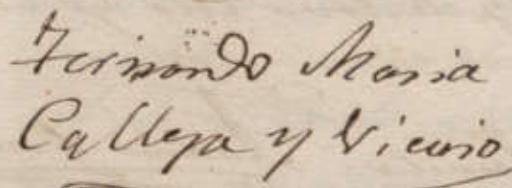 Fernando Maria
Calleja y Vicario